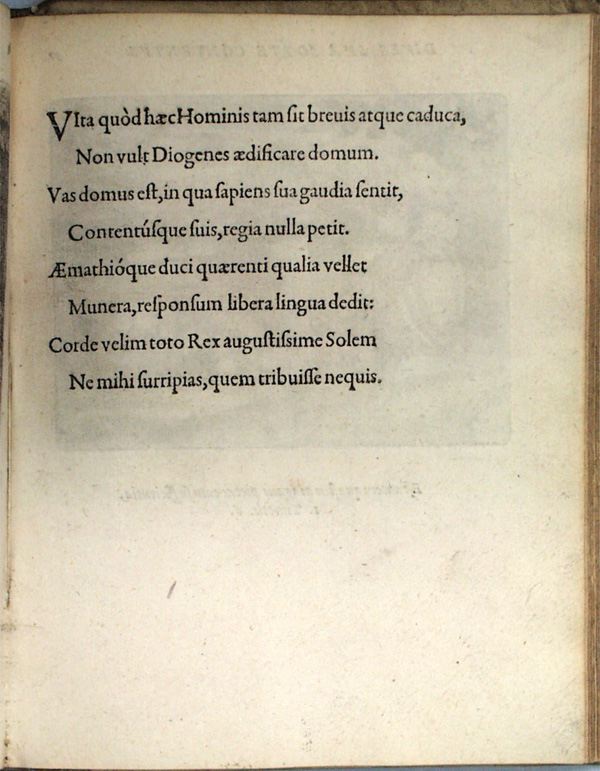 VIta quòd hæc Hominis tam ſit breuis atque caduca,
Non vult Diogenes ædificare domum.
Vas domus eſt, in qua ſapiens ſua gaudia ſentit,
Contentúſque ſuis, regia nulla petit.
Æmathióque duci quærenti qualia vellet
Munera, reſponſum libera lingua dedit:
Corde velim toto Rex auguſtiſsime Solem
Ne mihi ſurripias, quem tribuiſſe nequis.